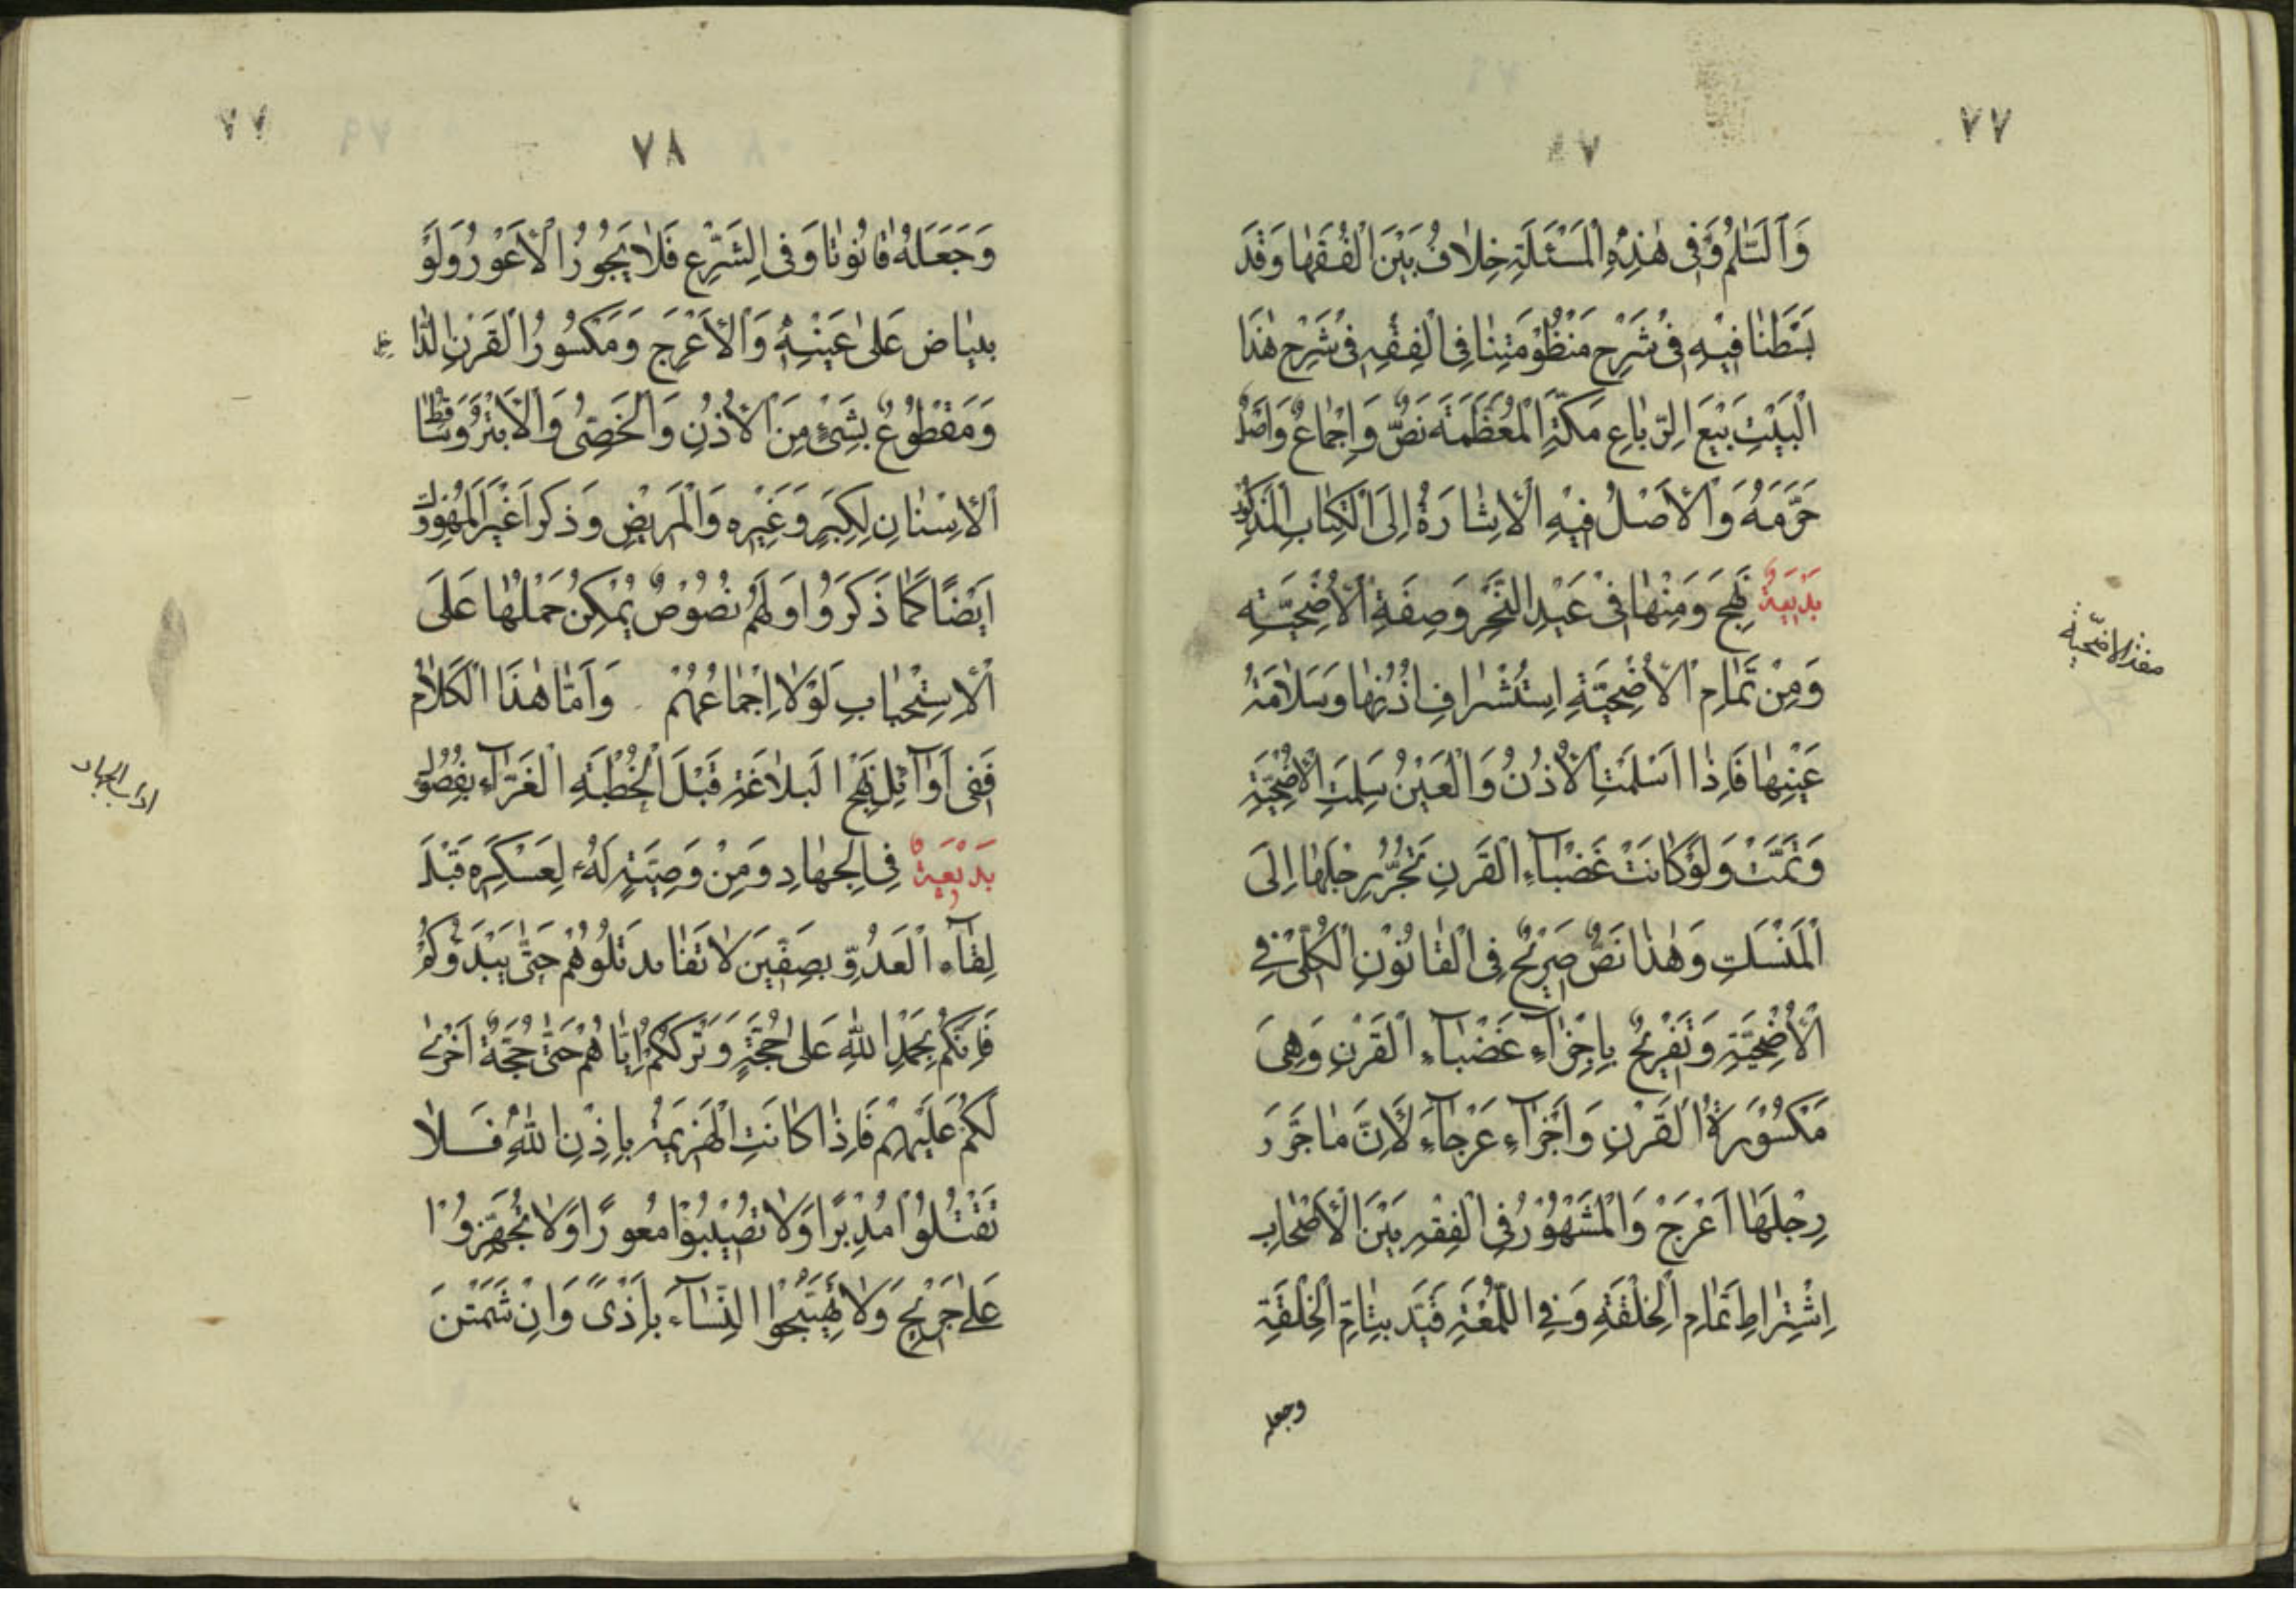 ٧٧
٧٧
وَالسَّلَمُ وَفِي هٰذِهِ الْمَسْئَلَةِ خِلاٰفُ بَيْنَ الْفُقَهٰا وَقَدْ
بَسَطْنٰا فِيْهِ فِى شَرْحِ مَنْظُوْمَتِنٰا فِى الْفِقْهِ فِى شَرْحِ هٰذَا
الْبَيْتِ بَيْعَ الرِّبٰاعِ مَكَّةِ الْمُعَظَّمَةَ نَصٌّ وَاِجْمٰاعٌ وَاصْلٌ
حَرَّمَهُ وَالْاَصْلُ فِيْهِ الْاِشٰارَةُ اِلَى الْكِتٰابِ الْمَذْكُوْرِ
بَدْيَعِةٌ نَهْجَ وَمِنْهٰا فِىْ عَيْدِ النَّحْرِ وَصِفَةِ الْاُضْحِيَّتِهِ
صفة الاضحية
وَمِنْ تَمٰامِ الْاُضْحِيَّةِ اِسْتُشْرٰافِ اُذُنِهٰا وَسَلاٰمَةُ
عَيْنِهٰا فَاِذٰا اَسْلَمَتِ الْاُذُنُ وَالْعَيْنُ سَلِمَتِ الْاُضْحِيَّةِ
وَتَمَّتْ وَلَوْ كٰانَتْ عَضْبٰاءِ الْقَرْنِ تَجُرُّ رِجْلَهٰا اِلَى
الْمَنْسَكِ وَهٰذٰا نَصٌّ صَرِيْحٌ فِى الْقٰانُوْنِ الْكُلِّىْ فِي
الْاُضْحِيَّتِهِ وَتَفْرِيْحٌ بِاِجْزٰاءِ عَضْبٰاءِ الْقَرْنِ وَهِىَ
مَكْسُوْرَةُ الْقَرْنِ وَاَجْزٰاءِ عَرْجٰاءِ لَاِنَّ مٰا جَرَّ
رِجْلَهٰا اَعْرَجْ وَالْمَشْهُوْرُ فِى الْفِقْهِ بَيْنَ الْاَصْحٰابِ
اِشْتِرٰاطِ تَمٰامِ الْخِلْقَةِ وَفِى اللُّمْعَةِ قَيَّدَ بِتٰامِّ الْخِلْقَةِ
وجعله
٧٨
وَجَعَلَهُ قٰانُوْنٰا وَفِى الشَّرْعِ فَلاٰ يَجُوْزُ الْاَعْوَرُ وَلَوْ
بِبَيٰاضٍ عَلٰى عَيْنِهٖ وَالْاَعْرَجِ وَمَكْسُوْرُ الْقَرْنِ الدّٰاخِلِ
وَمَقْطُوْعٌ بِشَىْءٍ مِنَ الْاُذُنِ وَالْخَصِىُّ وَالْاَبْتَرُ وَسٰاقِطُ
الْاَسْنٰانِ لِكِبَرٍ وَغَيْرِهِ وَالْمَرِيْضِ وَذَكَرُوا غَيْرَ الْمَهْزُوْلَةِ
اَيْضًا كَمٰا ذَكَرُوْا وَلَهُمْ نُصُوْصٌ يُمْكِنُ حَمْلُهٰا عَلَى
الْاِسْتِحْبٰابِ لَوْلاٰ اِجْمٰاعُهُمْ وَاَمّٰا هٰذَا الْكَلاٰمُ
فَفِى اَوٰائِلِ نَهْجِ الْبَلاٰغَةِ قَبْلَ الْخُطْبَةِ الْغَرّٰاءِ بِفُصُوْلٍ
اداب الجهاد
بَدْيَعِةٌ فِى الْجِهٰادِ وَمِنْ وَصِيَّةٍ لَهُ لِعَسْكَرِهِ قَبْلَ
لِقٰاءِ الْعَدُوِّ بِصِفِّيَن لاٰ تُقٰاتِلُوْهُمْ حَتّٰى يَبْدَؤُكُمْ
فَاِنَّكُمْ بِحَمْدِ اللّٰهِ عَلٰى حُجَّةٍ وَتَرْكُكُمْ اِيّٰاهُمْ حَتّٰى حُجَّةٌ اُخْرٰى
لَكُمْ عَلَيْهِمْ فَاِذٰا كٰانَتِ الْهَزِيْمَةُ بِاِذْنِ اللّٰهِ فَلاٰ
تَقْتُلُوْا مُدْبِرًا وَلاٰ تُصِيْبُوْا مُعْوِرًا وَلاٰ تُجْهِزُوْا
عَلٰى جَرِيْحٍ وَلاٰ تُهَيِّجُوا النِّسٰاءَ بِاَذًى وَاِنْ شَتَمْنَ